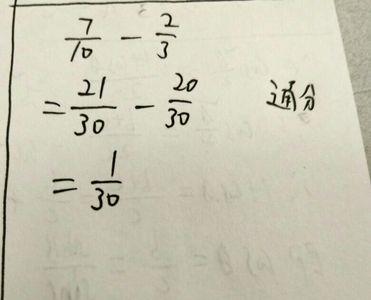 7/10 - 2/3
= 21/30 - 20/30 通分
= 1/30